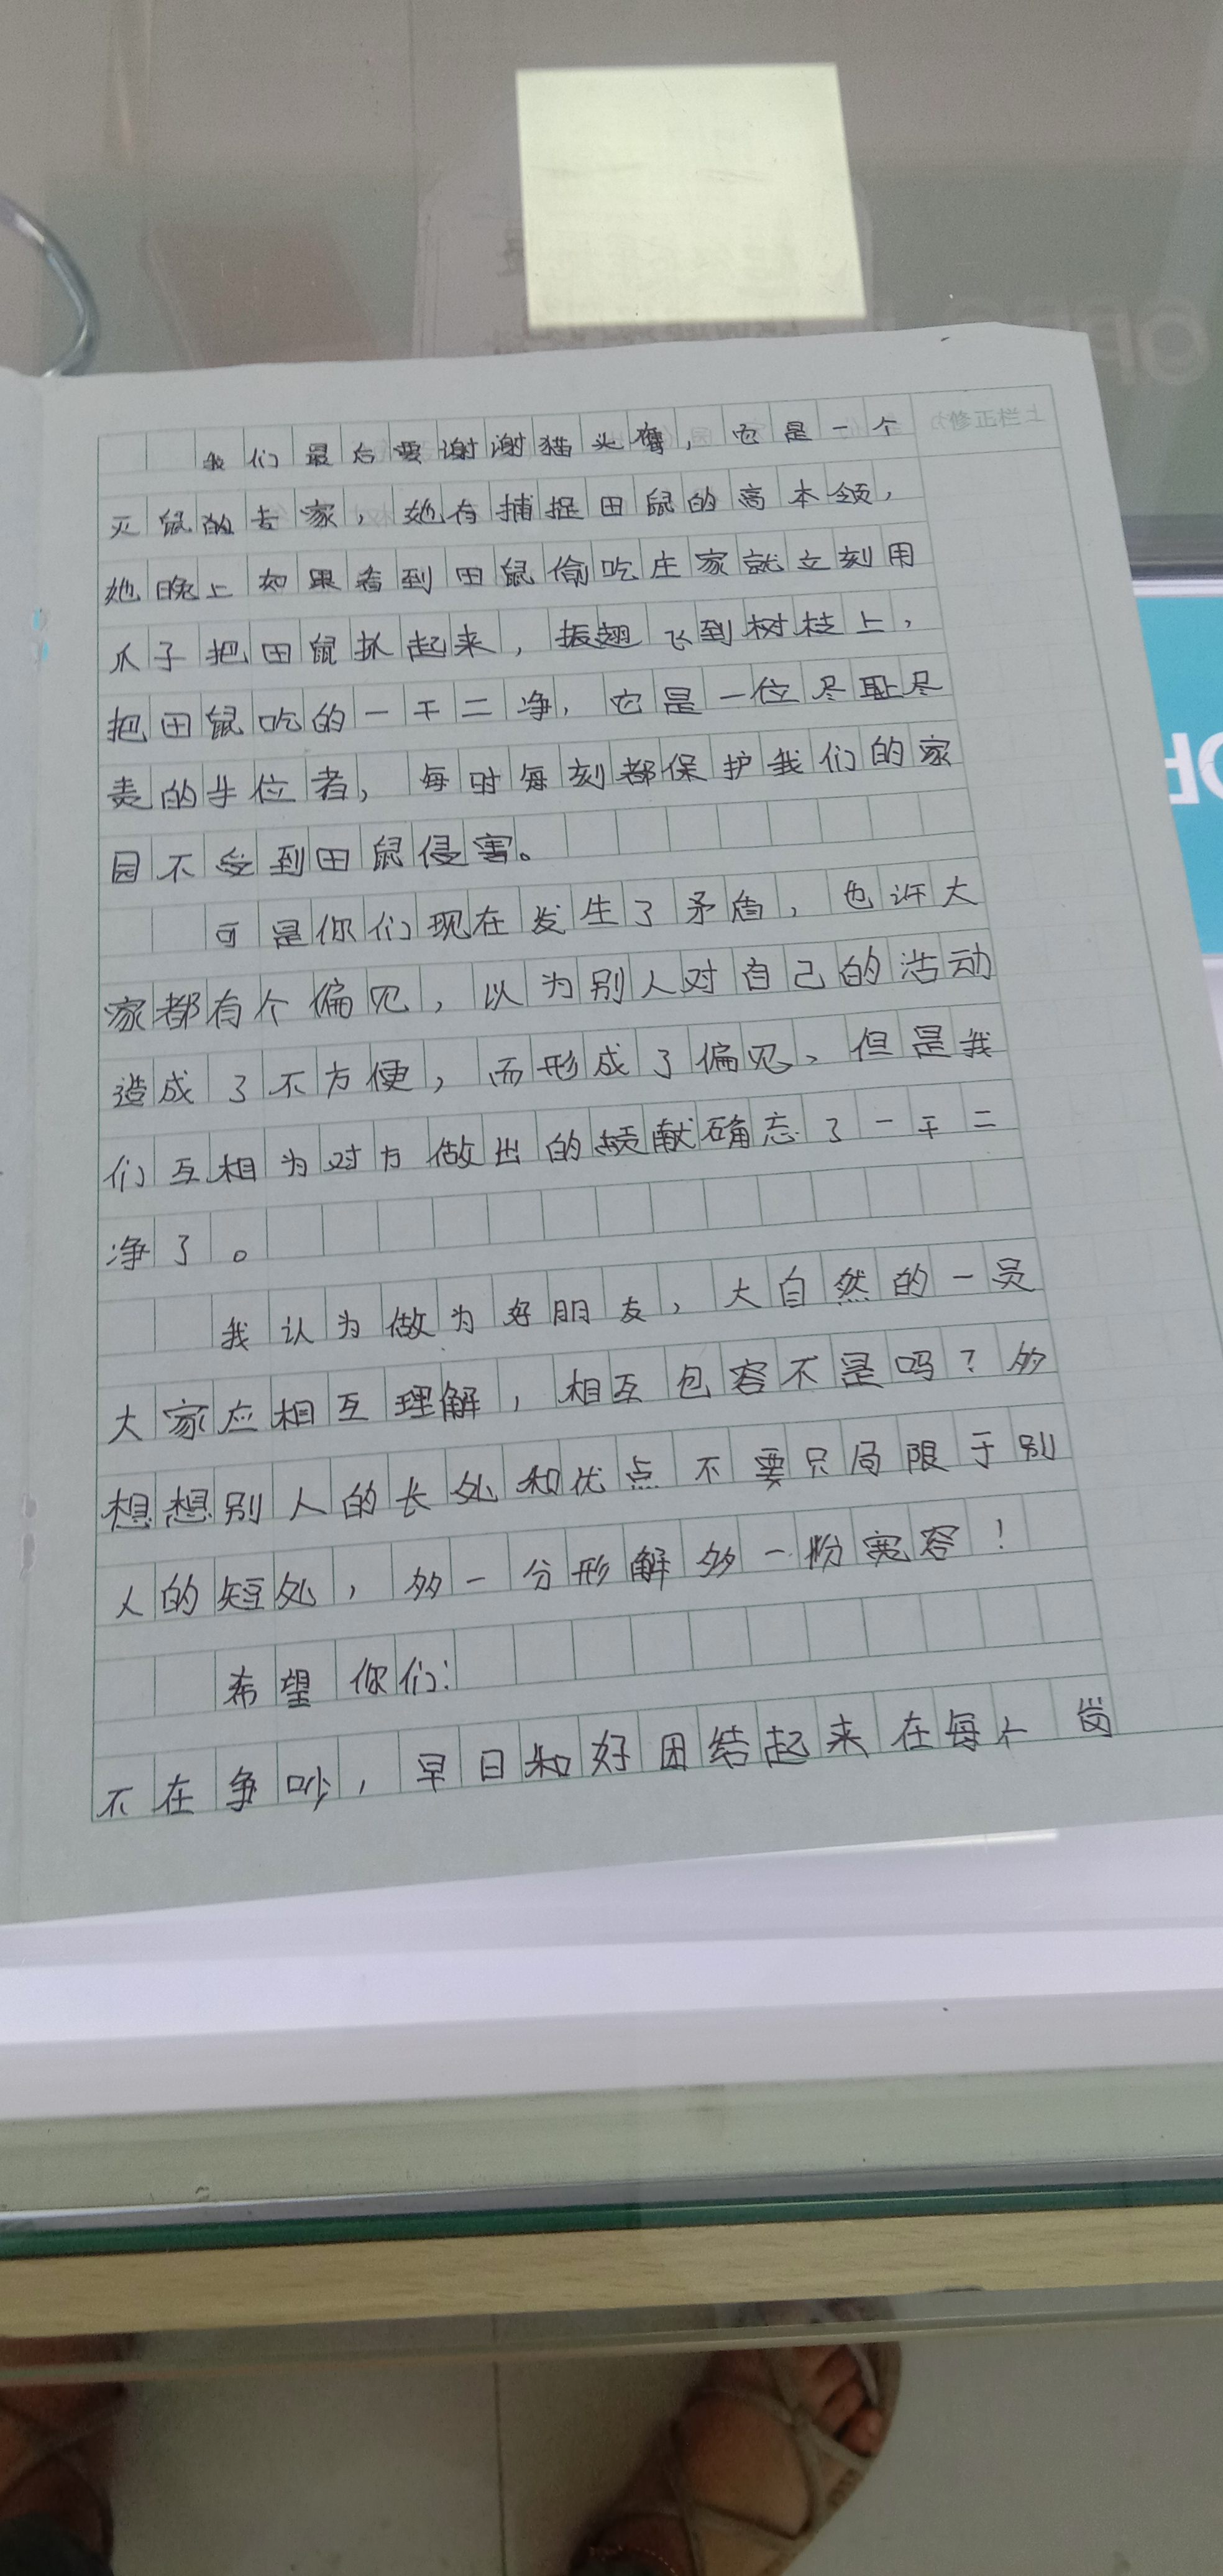 我们最后要谢谢猫头鹰，它是一个
灭鼠的专家，她有捕捉田鼠的高本领，
她晚上如果看到田鼠偷吃庄家就立刻用
爪子把田鼠抓起来，振翅飞到树枝上，
把田鼠吃的一干二净，它是一位尽耻尽
责的半位者，每时每刻都保护我们的家
园不受到田鼠侵害。
可是你们现在发生了矛盾，也许大
家都有个偏见，以为别人对自己的活动
造成了不方便，而形成了偏见、但是我
们互相为对方做出的贡献确忘了一干二
净了。
我认为做为好朋友，大自然的一员
大家应相互理解，相互包容不是吗？多
想想别人的长处和优点不要只局限于别
人的短处，多一分形解多一份宽容！
希望你们：
不在争吵，早日和好团结起来在每个岗
修正栏上